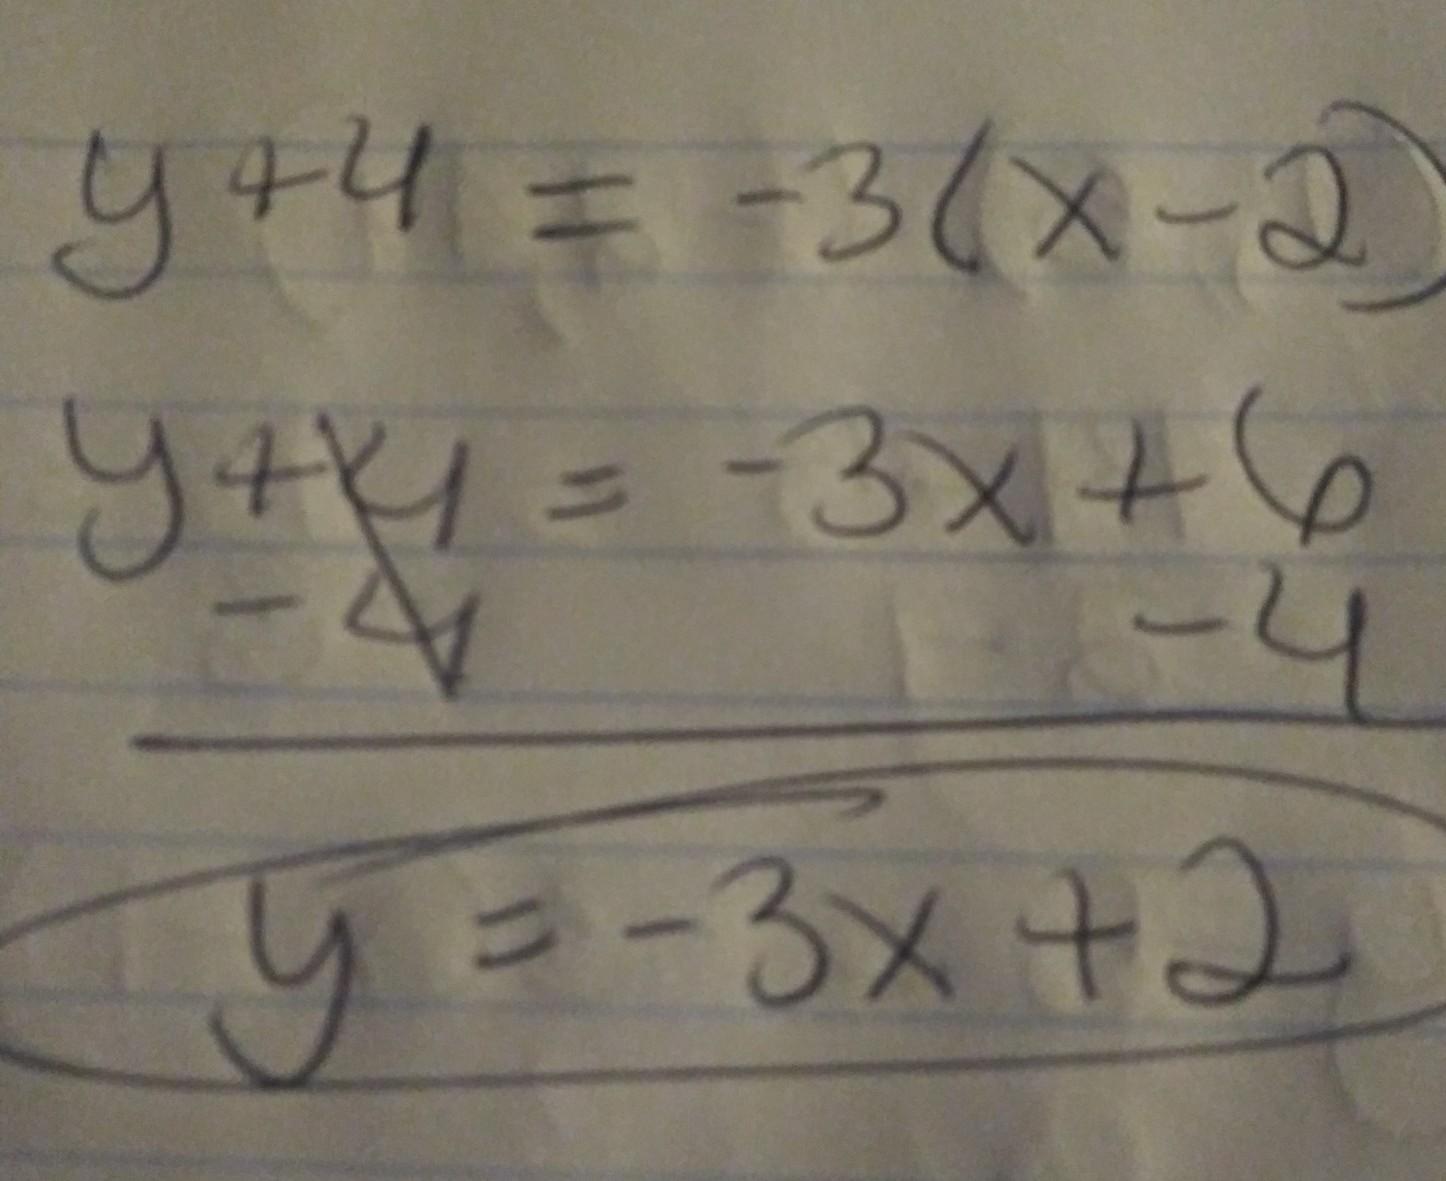 y + 4 = -3(x - 2)
y + 4 = -3x + 6
- 4 - 4
y = -3x + 2